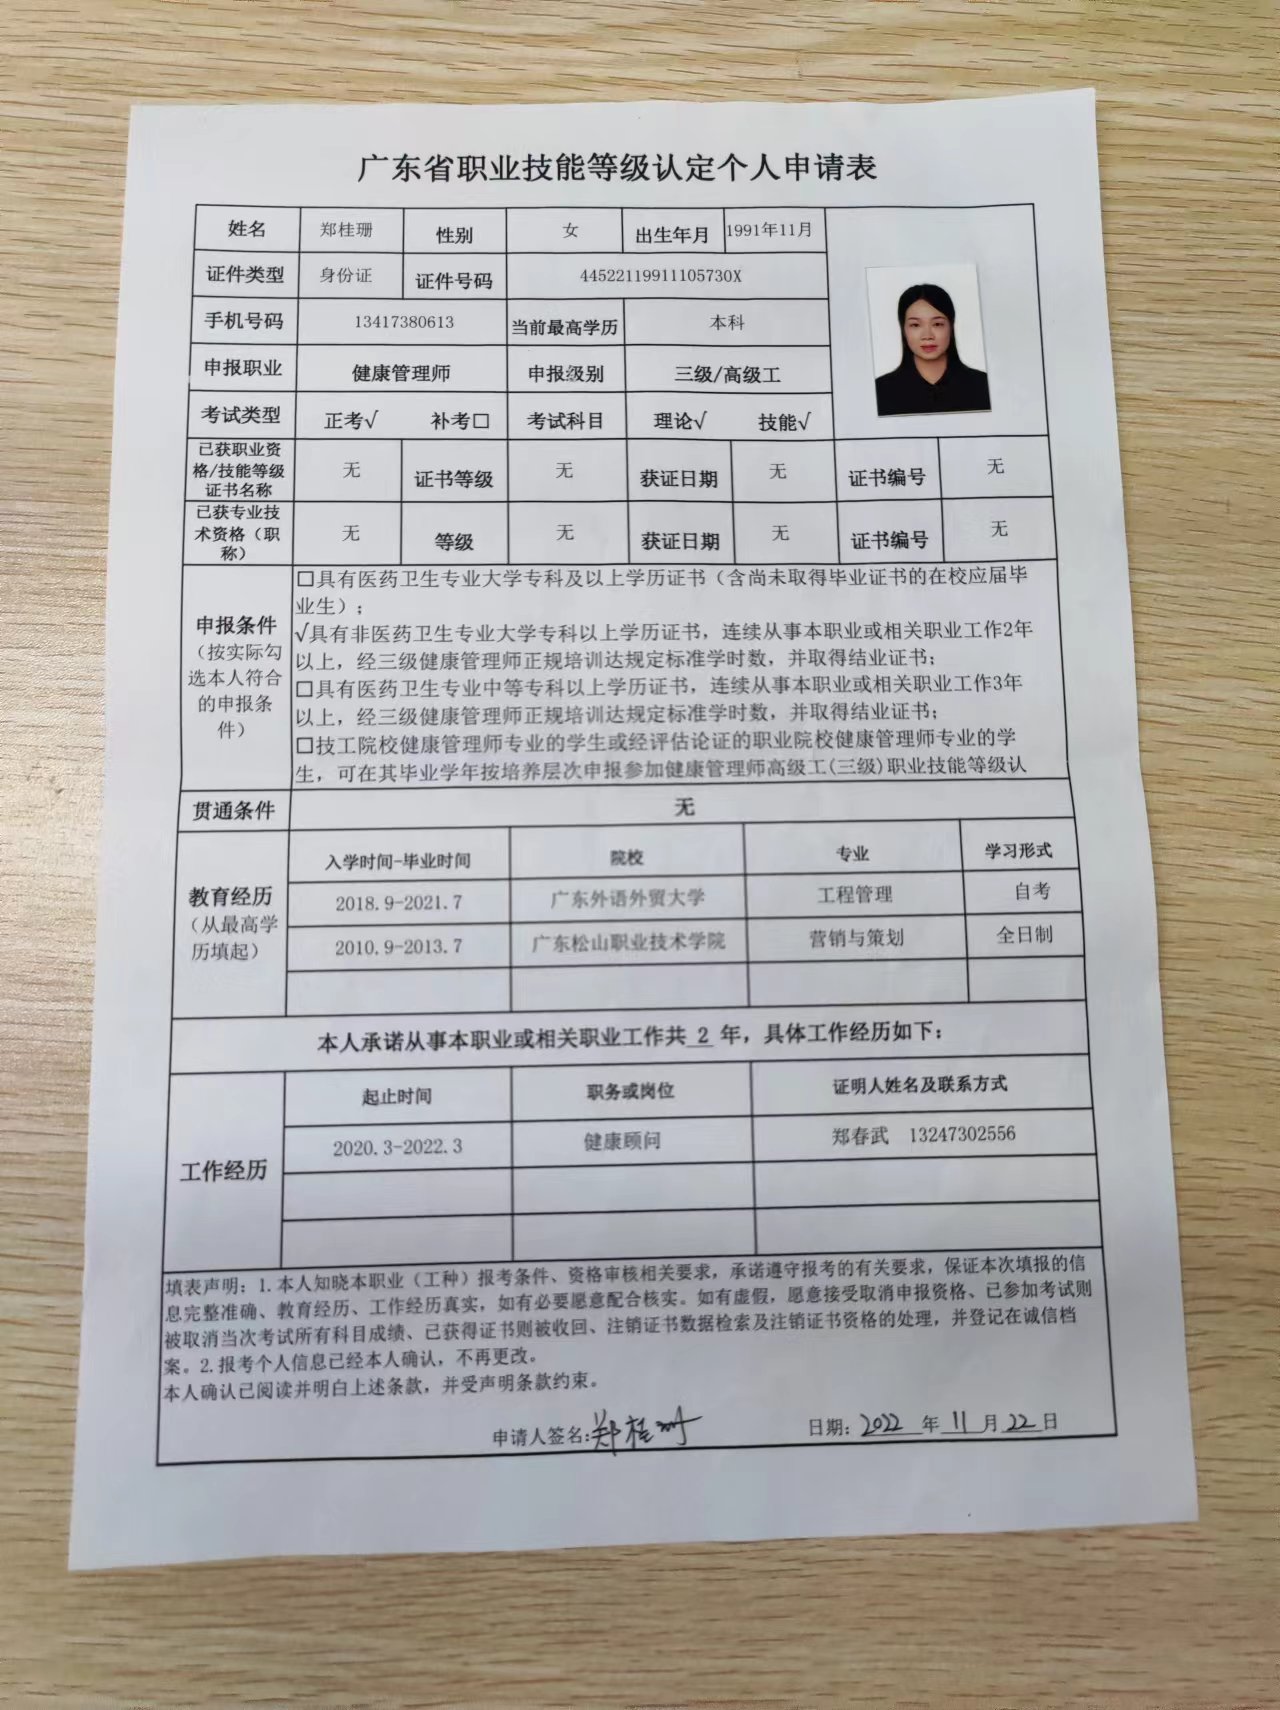 广东省职业技能等级认定个人申请表
姓名 郑桂珊 性别 女 出生年月 1991年11月
证件类型 身份证 证件号码 44522119911105730X
手机号码 13417380613 当前最高学历 本科
申报职业 健康管理师 申报级别 三级/高级工
考试类型 正考√ 补考□ 考试科目 理论√ 技能√
已获职业资格/技能等级证书名称 无 证书等级 无 获证日期 无 证书编号 无
已获专业技术资格（职称） 无 等级 无 获证日期 无 证书编号 无
申报条件
（按实际勾选本人符合的申报条件）
□具有医药卫生专业大学专科及以上学历证书（含尚未取得毕业证书的在校应届毕
业生）；
√具有非医药卫生专业大学专科以上学历证书，连续从事本职业或相关职业工作2年
以上，经三级健康管理师正规培训达规定标准学时数，并取得结业证书；
□具有医药卫生专业中等专科以上学历证书，连续从事本职业或相关职业工作3年
以上，经三级健康管理师正规培训达规定标准学时数，并取得结业证书；
□技工院校健康管理师专业的学生或经评估论证的职业院校健康管理师专业的学
生，可在其毕业学年按培养层次申报参加健康管理师高级工(三级)职业技能等级认
贯通条件 无
教育经历
（从最高学历填起）
入学时间-毕业时间 院校 专业 学习形式
2018.9-2021.7 广东外语外贸大学 工程管理 自考
2010.9-2013.7 广东松山职业技术学院 营销与策划 全日制
本人承诺从事本职业或相关职业工作共 2 年，具体工作经历如下：
工作经历
起止时间 职务或岗位 证明人姓名及联系方式
2020.3-2022.3 健康顾问 郑春武 13247302556
填表声明：1.本人知晓本职业（工种）报考条件、资格审核相关要求，承诺遵守报考的有关要求，保证本次填报的信
息完整准确、教育经历、工作经历真实，如有必要愿意配合核实。如有虚假，愿意接受取消申报资格、已参加考试则
被取消当次考试所有科目成绩、已获得证书则被收回、注销证书数据检索及注销证书资格的处理，并登记在诚信档
案。2.报考个人信息已经本人确认，不再更改。
本人确认已阅读并明白上述条款，并受声明条款约束。
申请人签名：郑桂珊 日期：2022 年 11 月 22 日